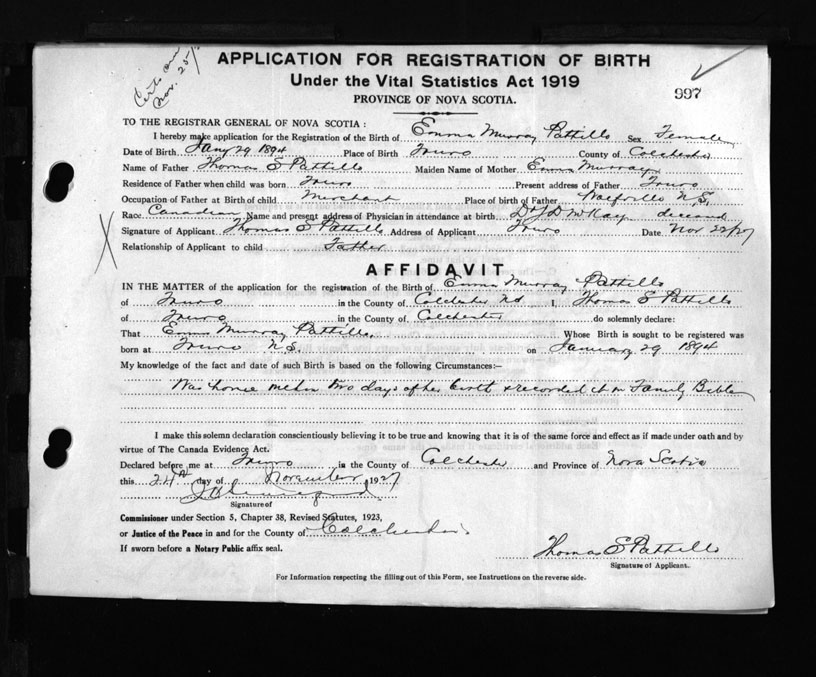 Certs
Nov. 25/
APPLICATION FOR REGISTRATION OF BIRTH
Under the Vital Statistics Act 1919
997
PROVINCE OF NOVA SCOTIA.
TO THE REGISTRAR GENERAL OF NOVA SCOTIA :
I hereby make application for the Registration of the Birth of Emma Murray Pattillo Sex Female
Date of Birth Jany 29 1894 Place of Birth Truro County of Colchester
Name of Father Thomas S Pattillo Maiden Name of Mother Emma Murray
Residence of Father when child was born Truro Present address of Father Truro
Occupation of Father at Birth of child Merchant Place of birth of Father N.S.
Race Canadian Name and present address of Physician in attendance at birth Dr J D McKay deceased
Signature of Applicant Thomas S Pattillo Address of Applicant Truro Date Nov 22/27
Relationship of Applicant to child Father
AFFIDAVIT
IN THE MATTER of the application for the registration of the Birth of Emma Murray Pattillo
of Truro in the County of Colchester I, Thomas S Pattillo
of Truro in the County of Colchester do solemnly declare:
That Emma Murray Pattillo Whose Birth is sought to be registered was
born at Truro N.S. on January 29 1894
My knowledge of the fact and date of such Birth is based on the following Circumstances:—
Was home within two days of her birth & recorded it in Family Bible
I make this solemn declaration conscientiously believing it to be true and knowing that it is of the same force and effect as if made under oath and by
virtue of The Canada Evidence Act.
Declared before me at Truro in the County of Colchester and Province of Nova Scotia
this 24th day of November 1927
Signature of
Commissioner under Section 5, Chapter 38, Revised Statutes, 1923,
or Justice of the Peace in and for the County of Colchester
If sworn before a Notary Public affix seal.
Thomas S Pattillo
Signature of Applicant.
For Information respecting the filling out of this Form, see Instructions on the reverse side.